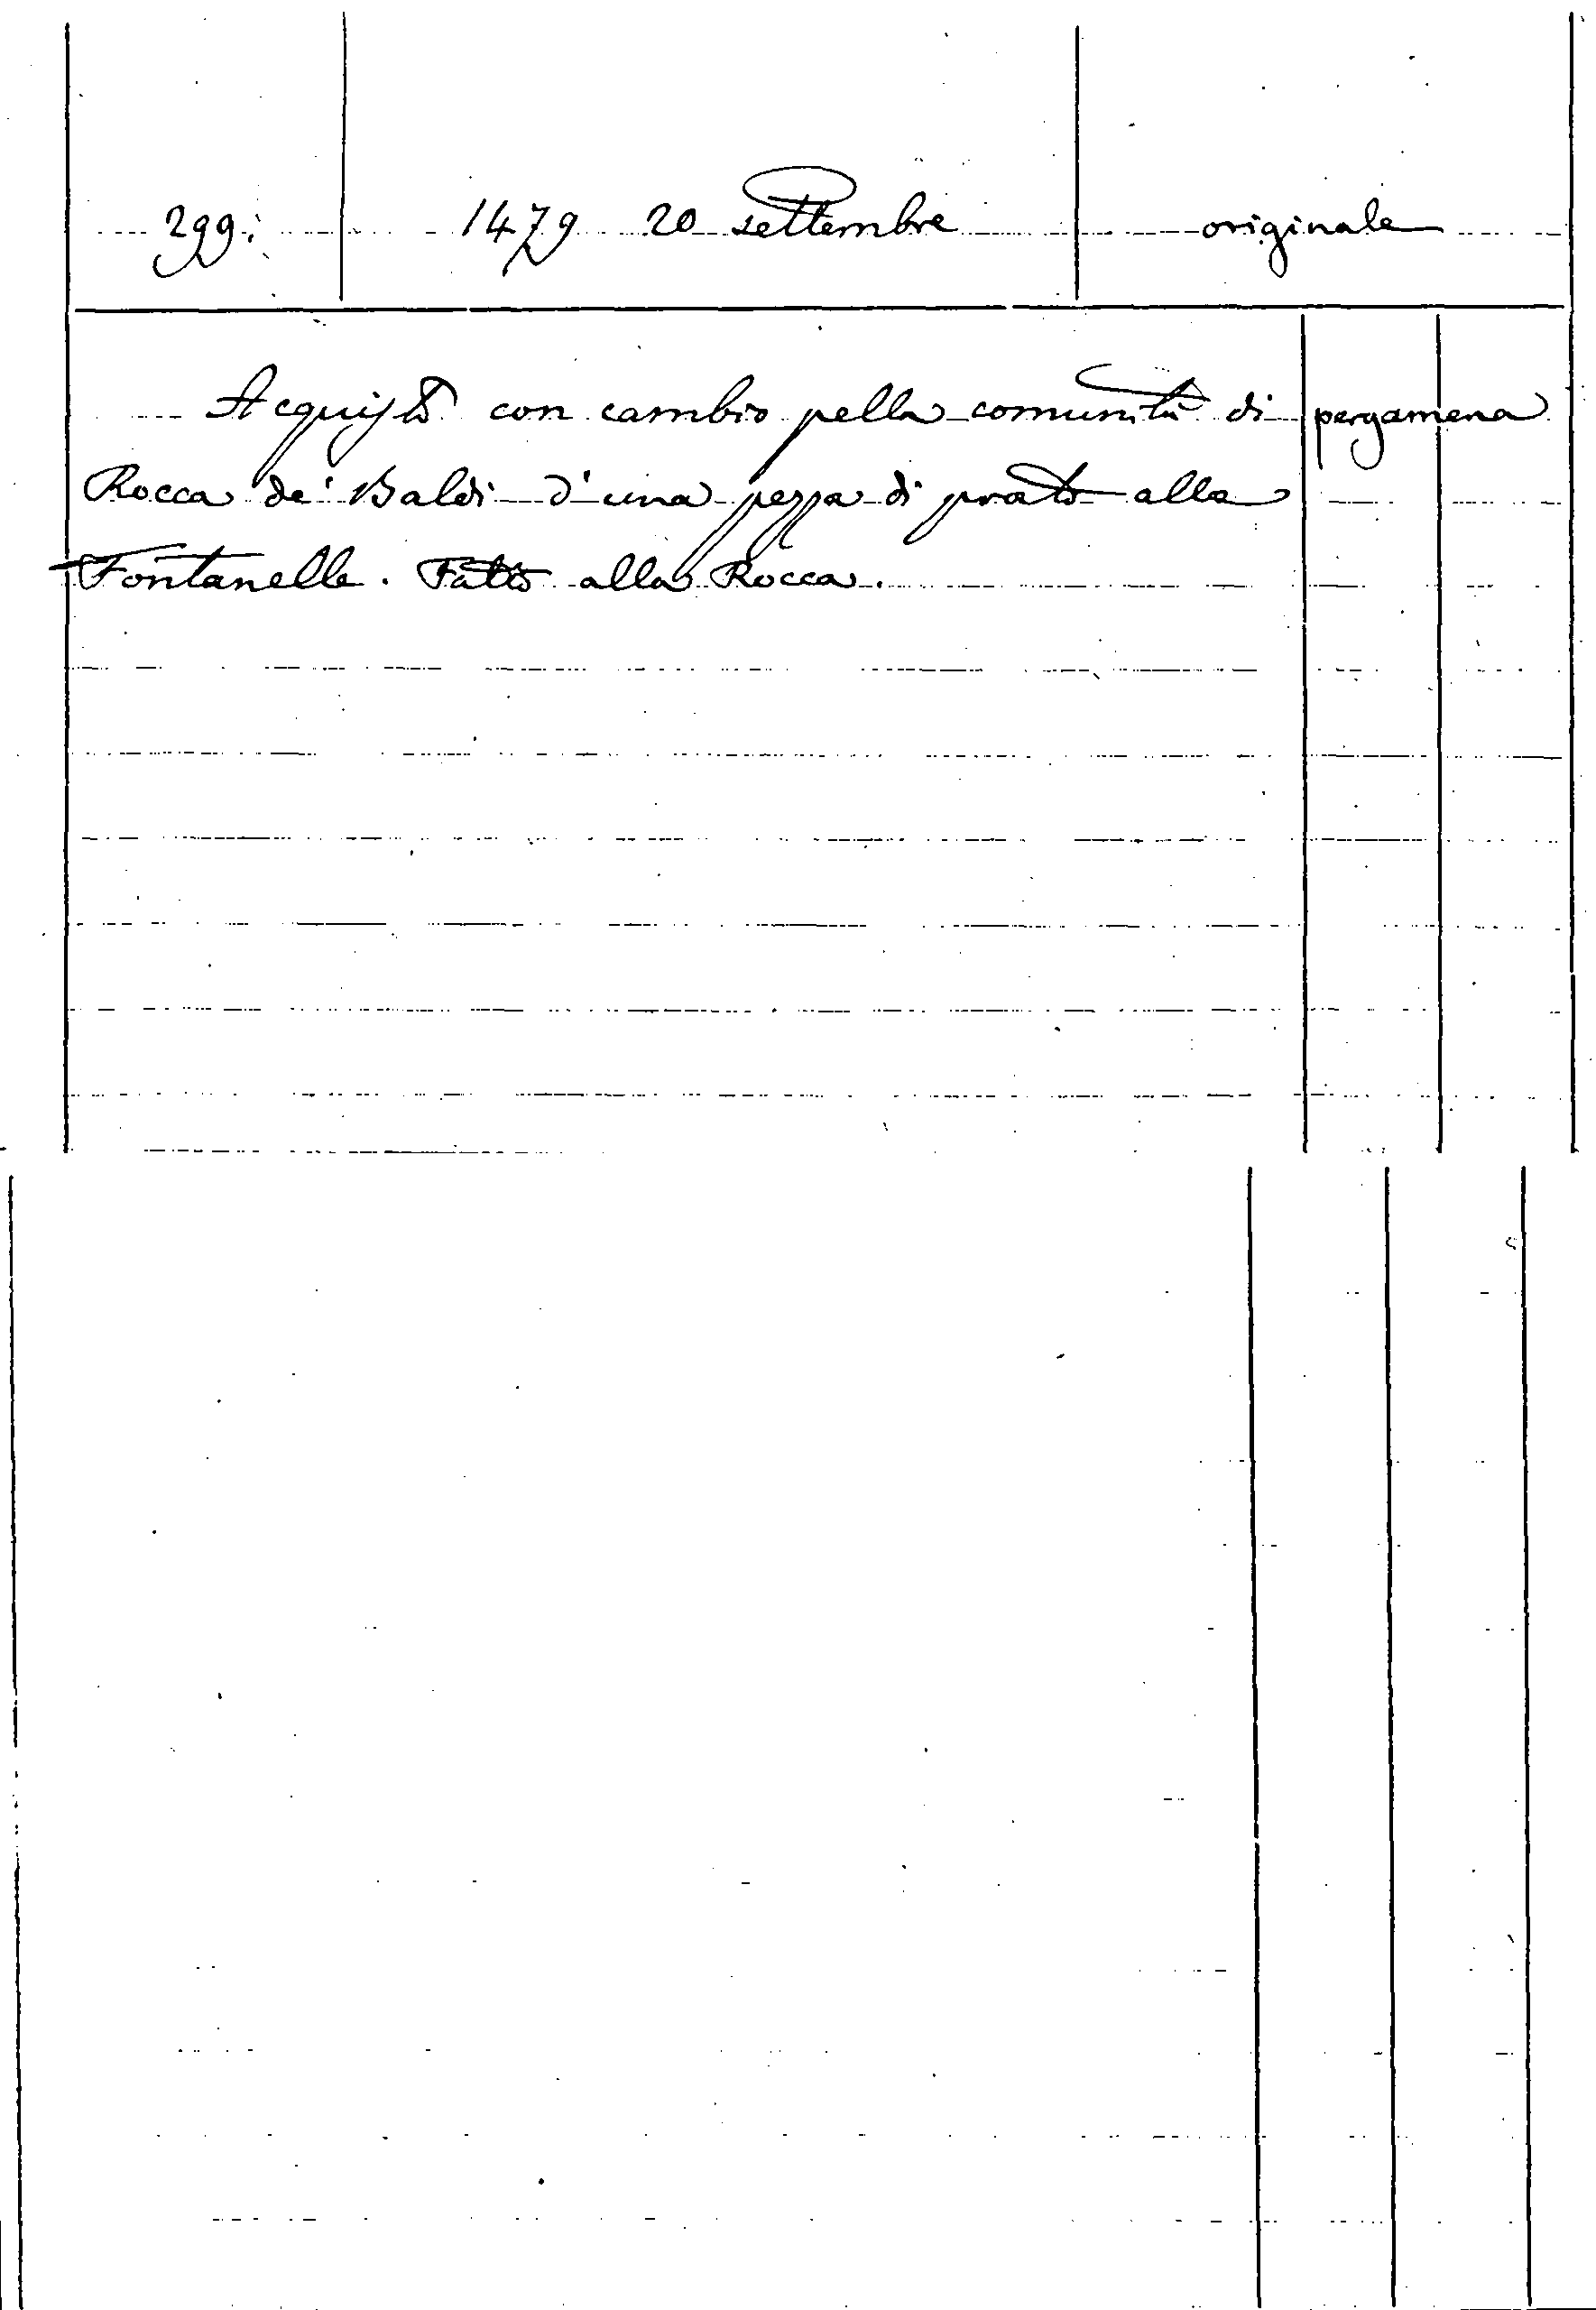 299. 1479 20 settembre originale
Acquisto con cambio pella comunità di pergamena
Rocca de' Baldi d'una pezza di prato alla
Fontanelle. Fatto alla Rocca.